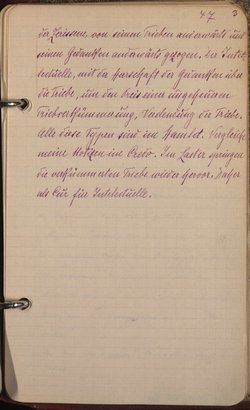 47 3
der Zerrissene, von seinen Trieben andauernd und
seinen Gedanken anderwärts gezogen. Der Intel-
lektuelle, mit der Herrschaft der Gedanken über
die Triebe, um den Preis einer ungeheuren
Triebverkümmerung, Verdrängung der Triebe.
Alle diese Typen sind im Hamlet. Vergleiche
meine Notizen im Credo. Im Laster springen
die verkümmerten Triebe wieder hervor. Daher
als Cur für Intellektuelle.